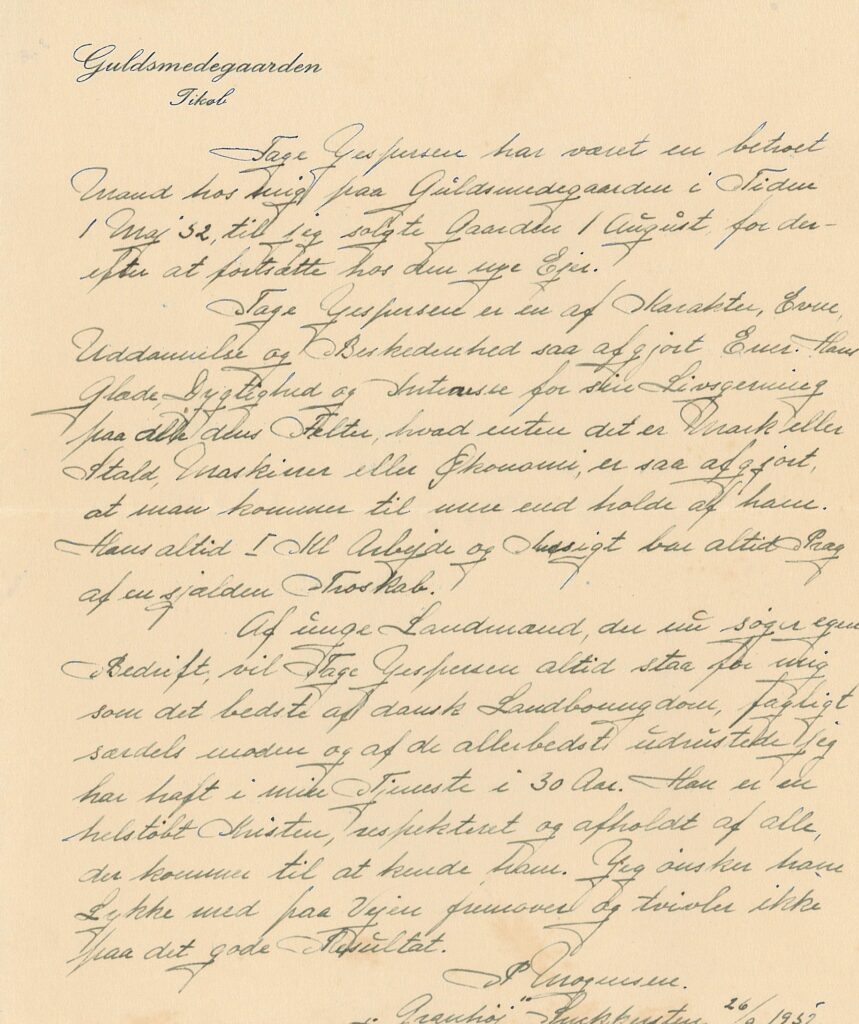 Guldsmedegaarden
Tikøb
Tage Jespersen har været en betroet
Mand hos mig paa Guldsmedegaarden i Tiden
1 Maj 52, til jeg solgte Gaarden 1 August, for der-
efter at fortsætte hos den nye Ejer.
Tage Jespersen er en af Karakter, Evne,
Uddannelse og Beskedenhed saa afgjort Ener. Hans
Glæde Dygtighed og Interesse for sin Livsgerning
paa alle dens Felter, hvad enten det er Mark eller
Stald, Maskiner eller Økonomi, er saa afgjort,
at man kommer til mere end holde af ham.
Hans altid I Kl Arbejde og Indsigt bar altid Præg
af en sjælden Troskab.
Af unge Landmænd, der nu søger egen
Bedrift, vil Tage Jespersen altid staa for mig
som det bedste af dansk Landboungdom, fagligt
særdels moden og af de allerbedst udrustede jeg
har haft i min Tjeneste i 30 Aar. Han er en
helstøbt Kristen, respekteret og afholdt af alle,
der kommer til at kende ham. Jeg ønsker ham
Lykke med paa Vejen fremover og tvivler ikke
paa det gode Resultat.
P Mogensen.
"Granhøj" 26/ 195